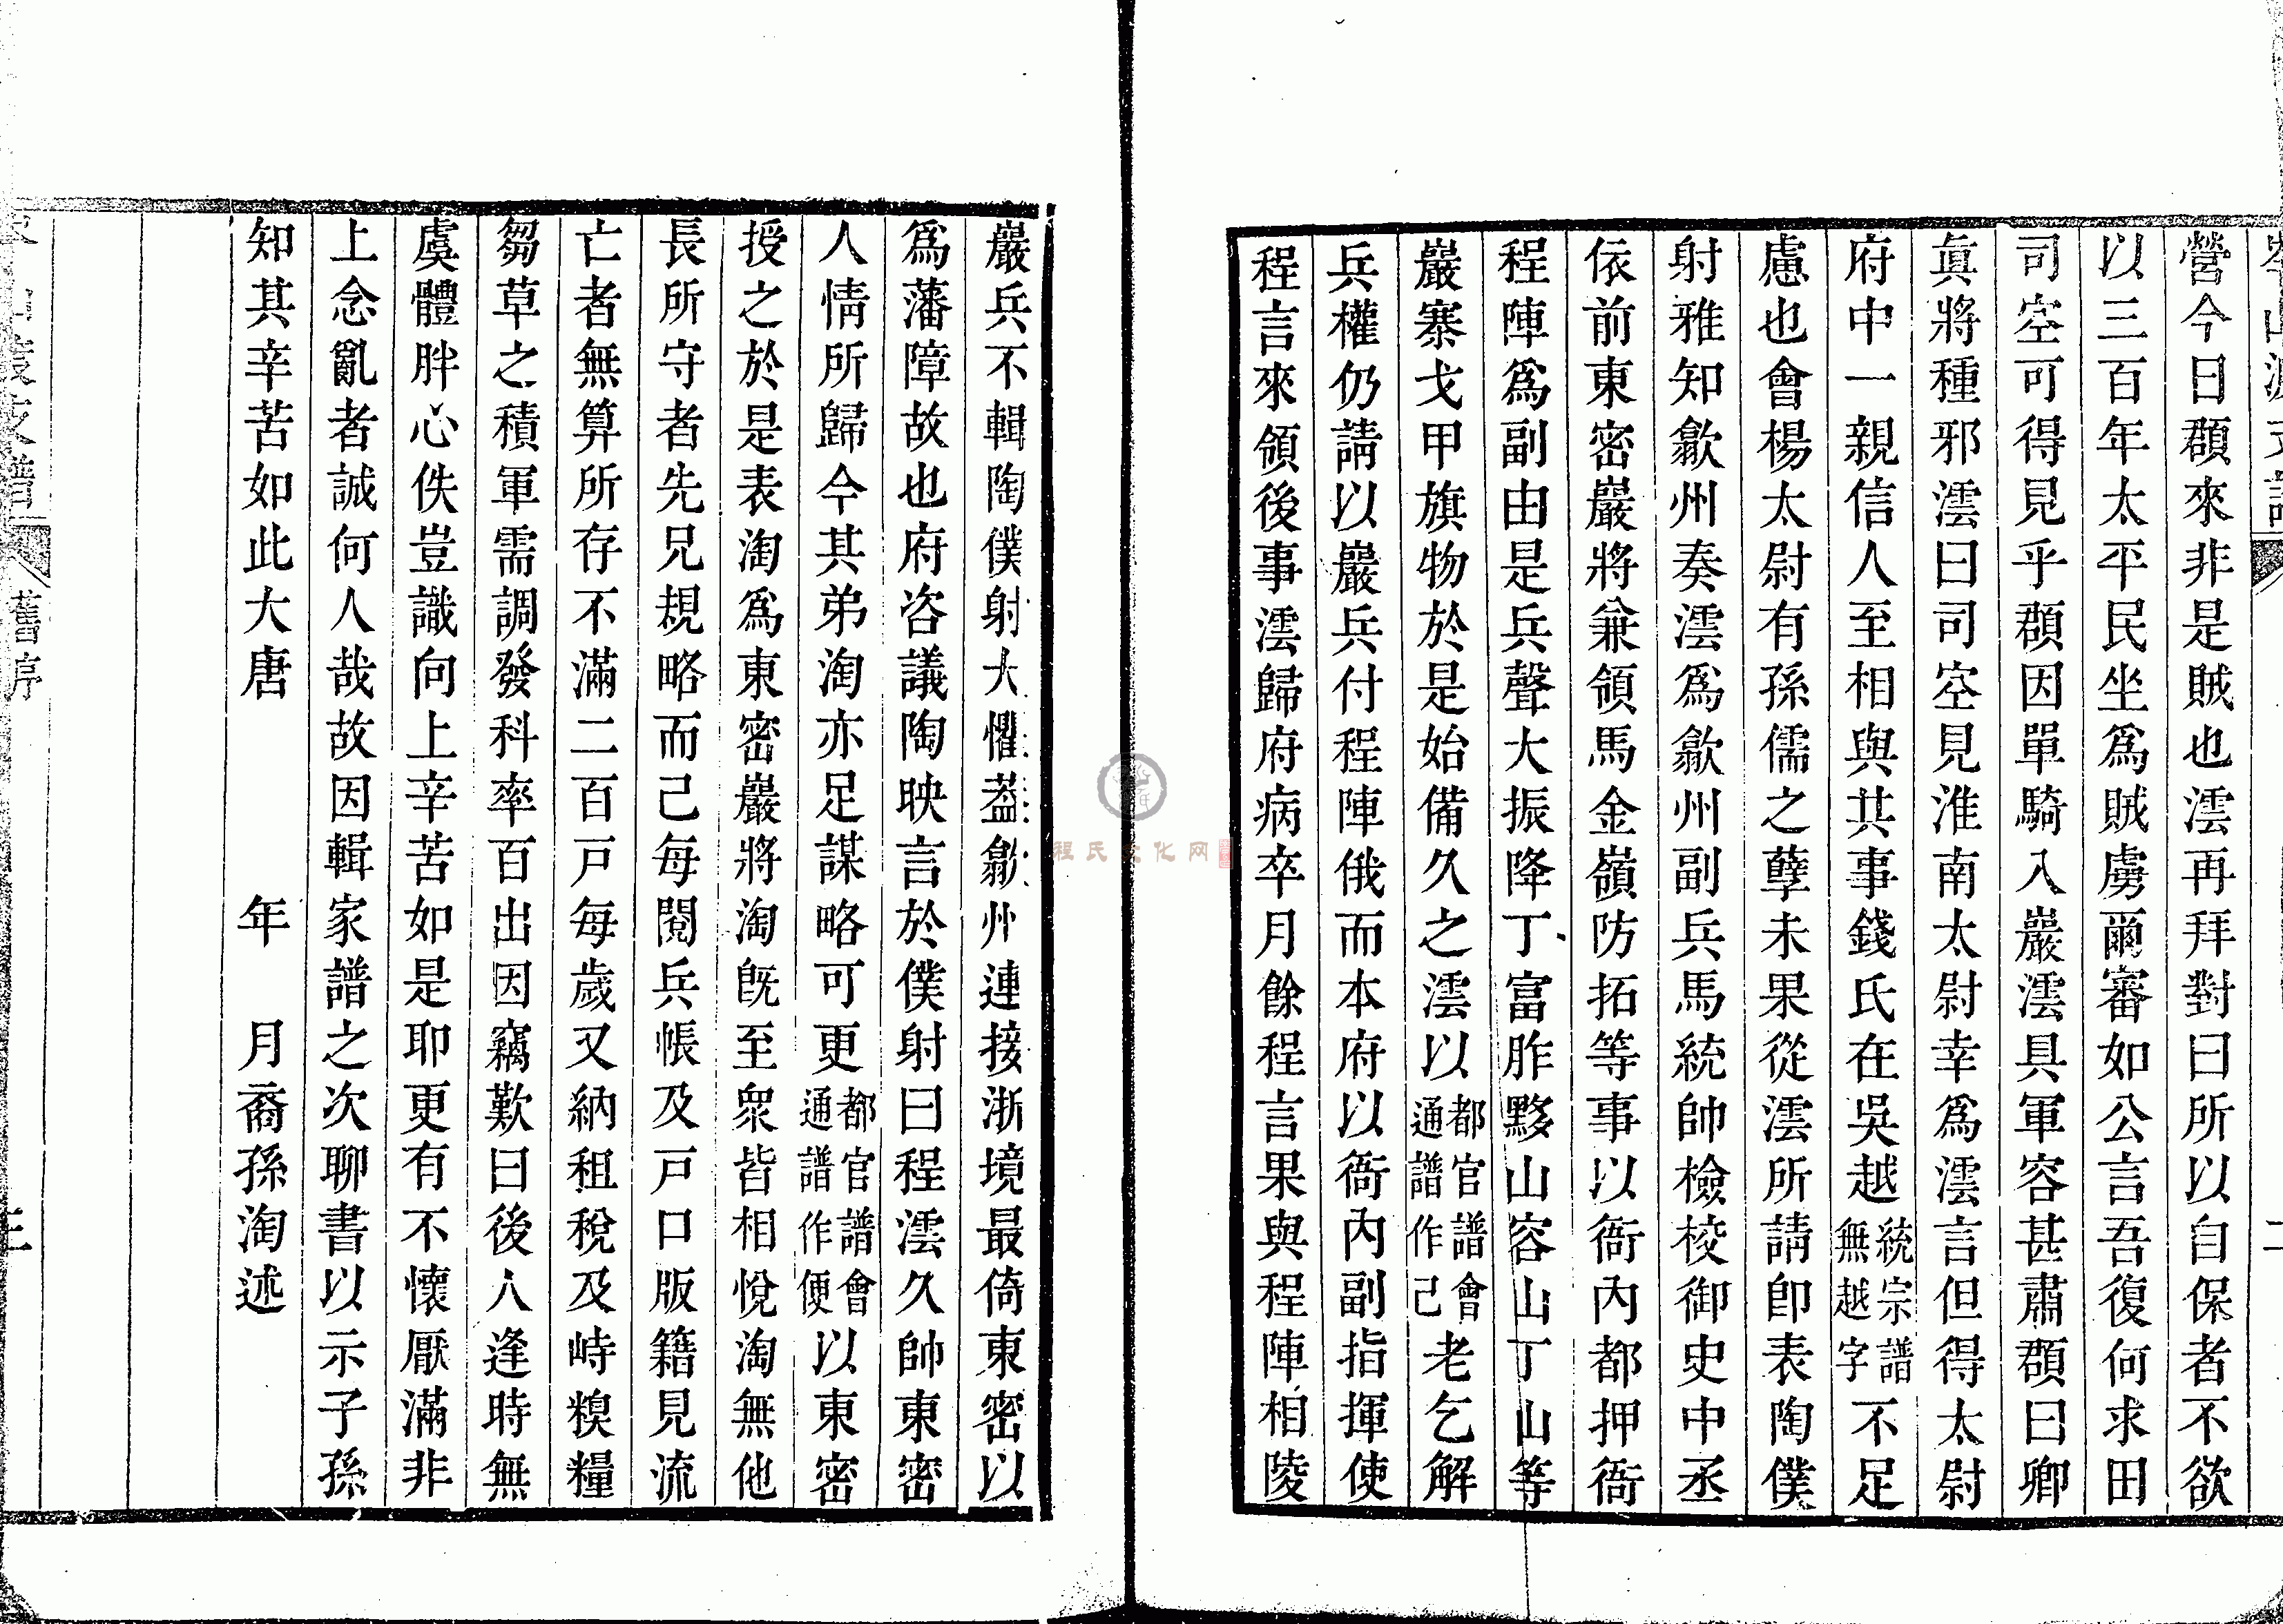 營今日頵來非是賊也澐再拜對曰所以自保者不欲
以三百年太平民坐爲賊虜爾審如公言吾復何求田
司空可得見乎頵因單騎入巖澐具軍容甚肅頵曰卿
眞將種邪澐曰司空見淮南太尉幸爲澐言但得太尉
府中一親信人至相與共事錢氏在吳越統宗譜無越字不足
慮也會楊太尉有孫儒之孽未果從澐所請卽表陶僕
射雅知歙州奏澐爲歙州副兵馬統帥檢校御史中丞
依前東密巖將兼領馬金嶺防拓等事以衙內都押衙
程陣爲副由是兵聲大振降丁富胙黟山容山丁山等
巖寨戈甲旗物於是始備久之澐以都官譜會通譜作己老乞解
兵權仍請以巖兵付程陣俄而本府以衙內副指揮使
程言來領後事澐歸府病卒月餘程言果與程陣相陵
巖兵不輯陶僕射大懼葢歙州連接浙境最倚東密以
爲藩障故也府咨議陶映言於僕射曰程澐久帥東密
人情所歸今其弟淘亦足謀略可更都官譜會通譜作便以東密
授之於是表淘爲東密巖將淘旣至衆皆相悅淘無他
長所守者先兄規略而己每閱兵帳及戸口版籍見流
亡者無算所存不滿二百戸每歲又納租稅及峙糗糧
芻草之積軍需調發科率百出因竊歎曰後人逢時無
虞體胖心佚豈識向上辛苦如是耶更有不懷厭滿非
上念亂者誠何人哉故因輯家譜之次聊書以示子孫
知其辛苦如此大唐 年 月裔孫淘述
舊序
三
二
程氏文化网